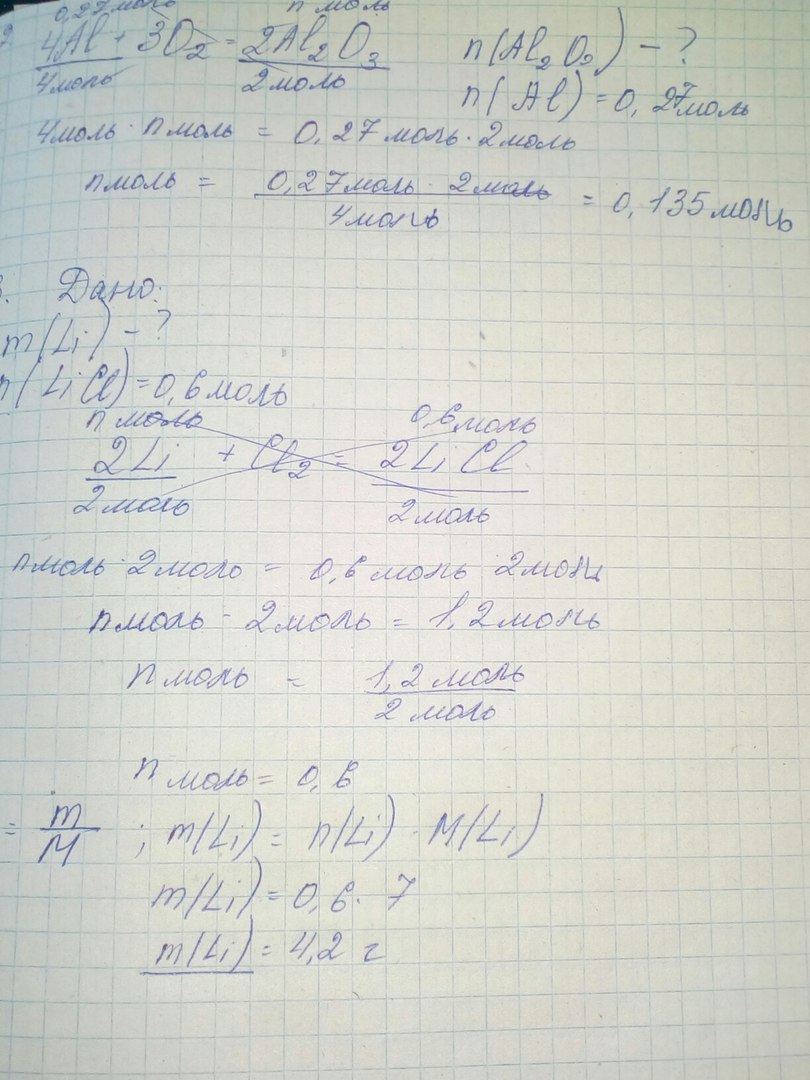 0,27моль n моль
2 4Al + 3O₂ = 2Al₂O₃ n(Al₂O₃) - ?
4моль 2моль n(Al) = 0,27моль
4моль · n моль = 0,27 моль · 2моль
n моль = 0,27моль · 2моль / 4моль = 0,135 моль
3. Дано:
m(Li) - ?
n(LiCl) = 0,6 моль
n моль 0,6 моль
2Li + Cl₂ = 2LiCl
2 моль 2 моль
n моль · 2моль = 0,6 моль · 2моль
n моль · 2моль = 1,2 моль
n моль = 1,2 моль / 2 моль
n моль = 0,6
= m / M ; m(Li) = n(Li) · M(Li)
m(Li) = 0,6 · 7
m(Li) = 4,2 г